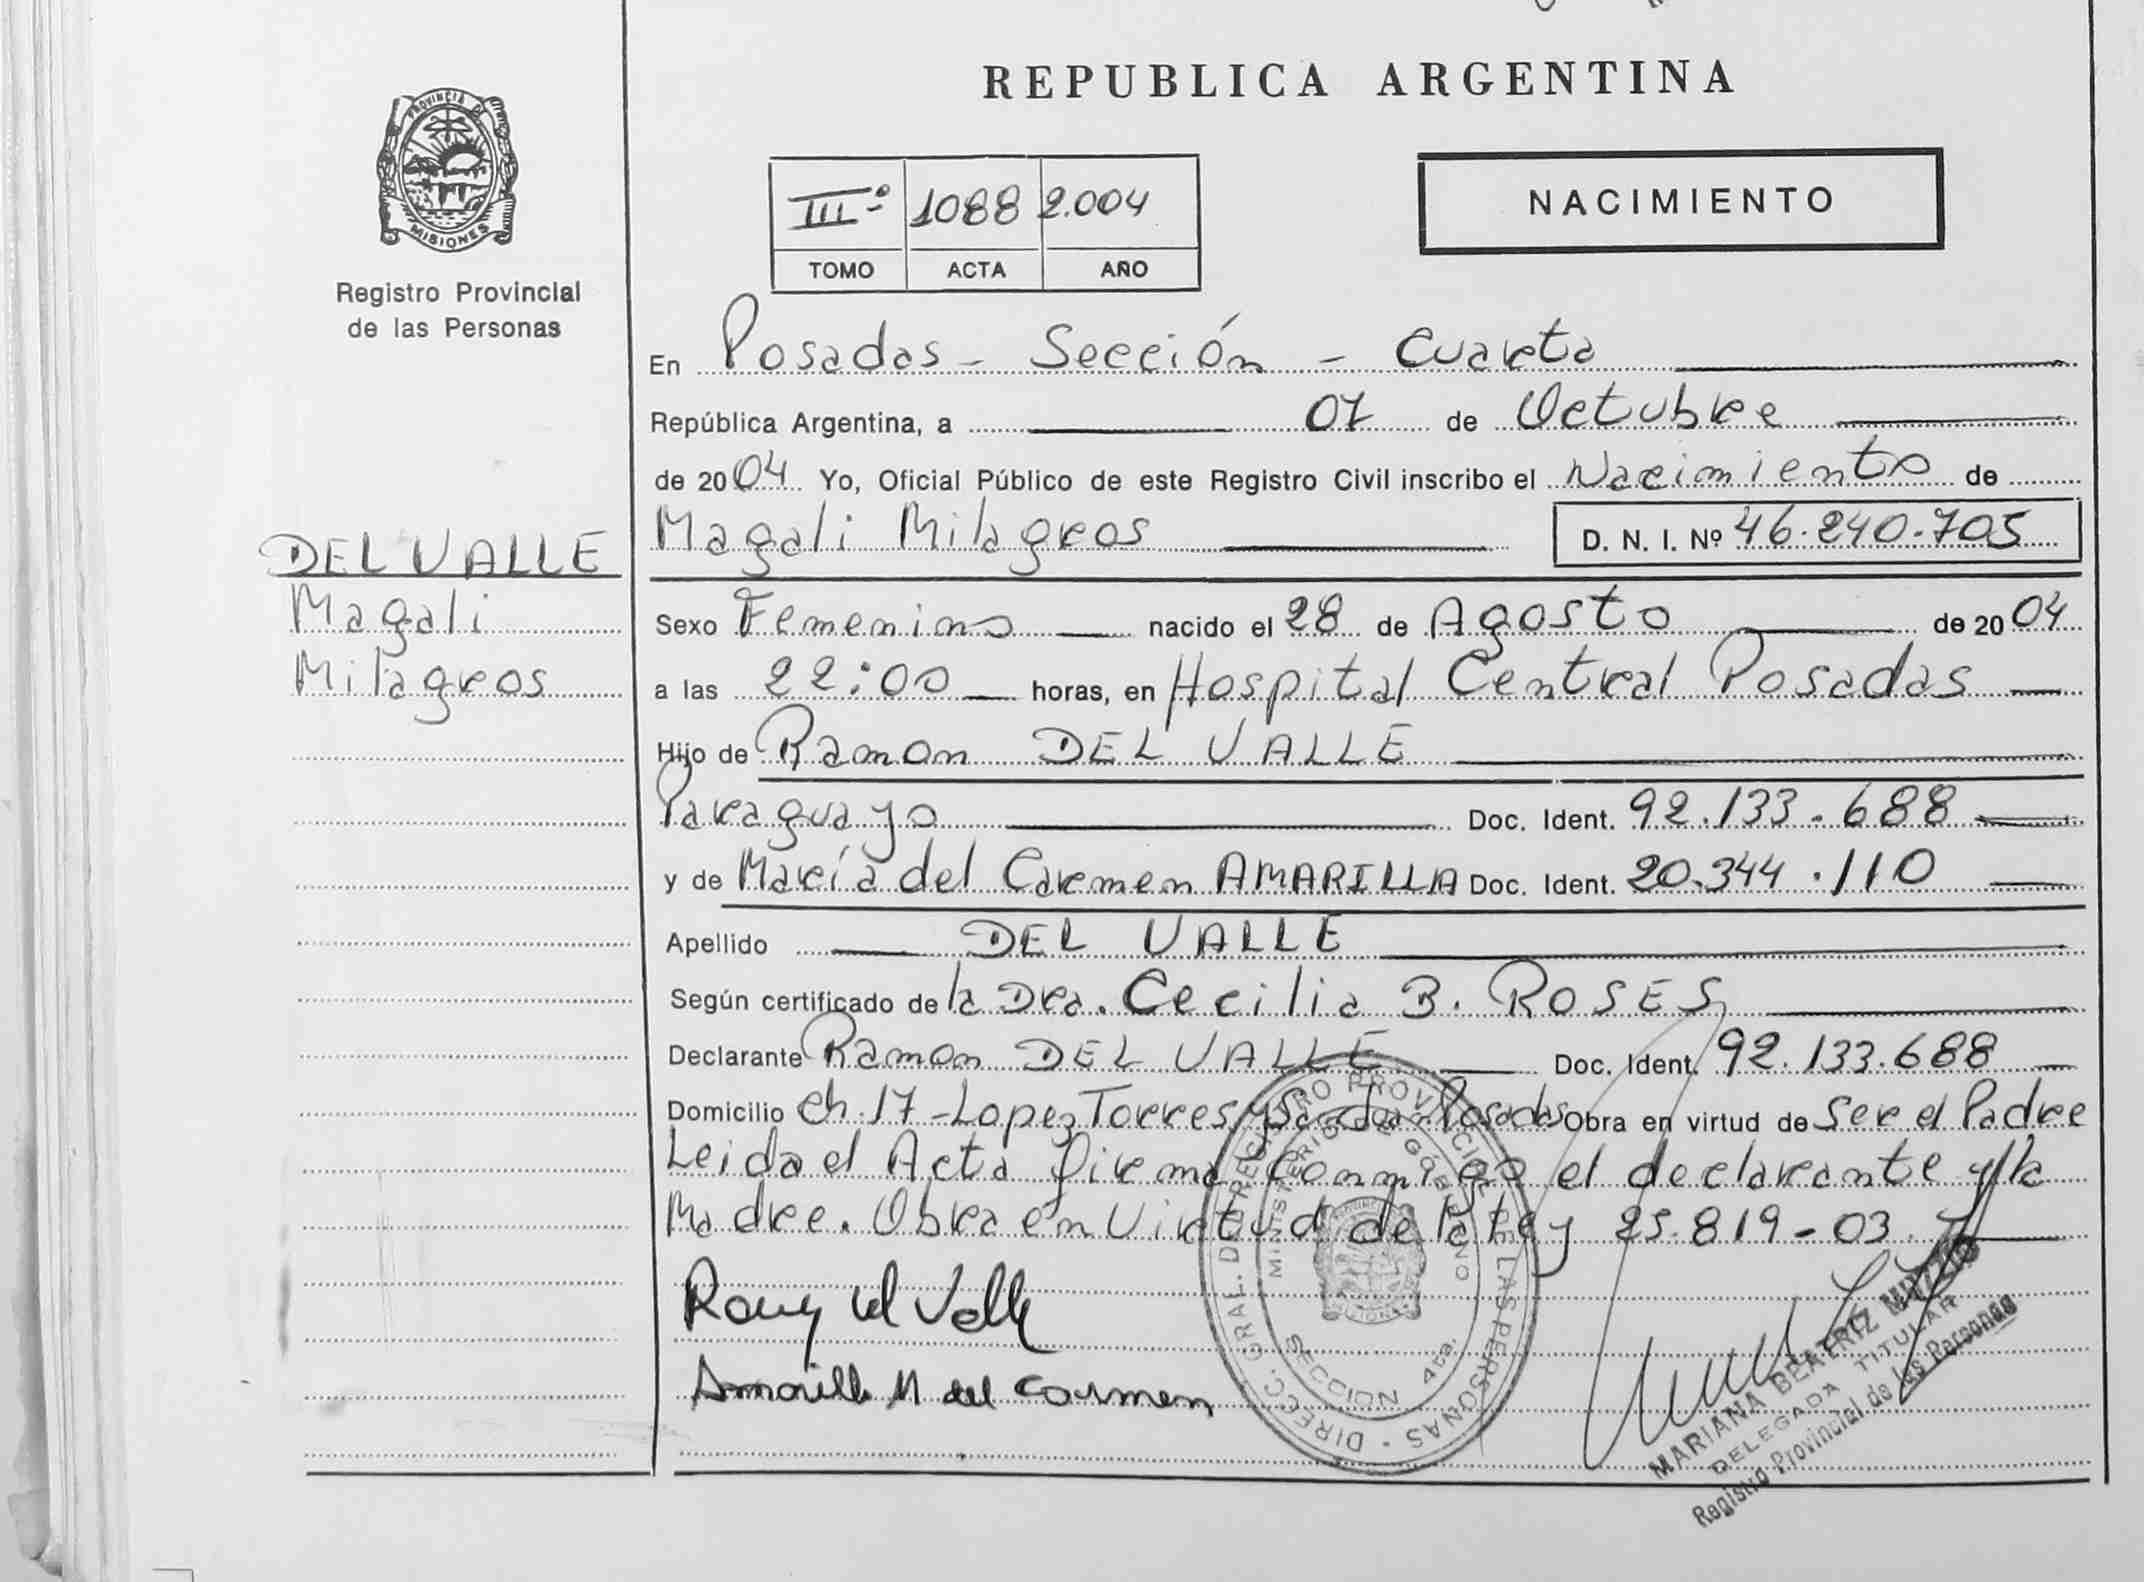 REPUBLICA ARGENTINA
PROVINCIA DE
MISIONES
Registro Provincial
de las Personas
IIIº 1088 2.004
TOMO ACTA AÑO
NACIMIENTO
En Posadas - Sección - Cuarta
República Argentina, a 07 de Octubre
de 2004 Yo, Oficial Público de este Registro Civil inscribo el Nacimiento de
Magali Milagros D. N. I. Nº 46.240.705
DEL VALLE
Magali
Milagros
Sexo Femenino nacido el 28 de Agosto de 2004
a las 22:00 horas, en Hospital Central Posadas
Hijo de Ramon DEL VALLE
Paraguayo Doc. Ident. 92.133.688
y de María del Carmen AMARILLA Doc. Ident. 20.344.110
Apellido DEL VALLE
Según certificado de la Dra. Cecilia B. ROSES
Declarante Ramon DEL VALLE Doc. Ident. 92.133.688
Domicilio Ch. 17 - Lopez Torres y San Juan Posadas Obra en virtud de Ser el Padre
Leida el Acta firma Conmigo el declarante y la
Madre. Obra en Virtud de la Ley 25.819-03.
del Valle
Amarilla M del Carmen
DIRECC. GRAL. DEL REGISTRO PROVINCIAL DE LAS PERSONAS
MINISTERIO DE GOBIERNO
SECCION 4ta.
MARIANA BEATRIZ
DELEGADA TITULAR
Registro Provincial de las Personas